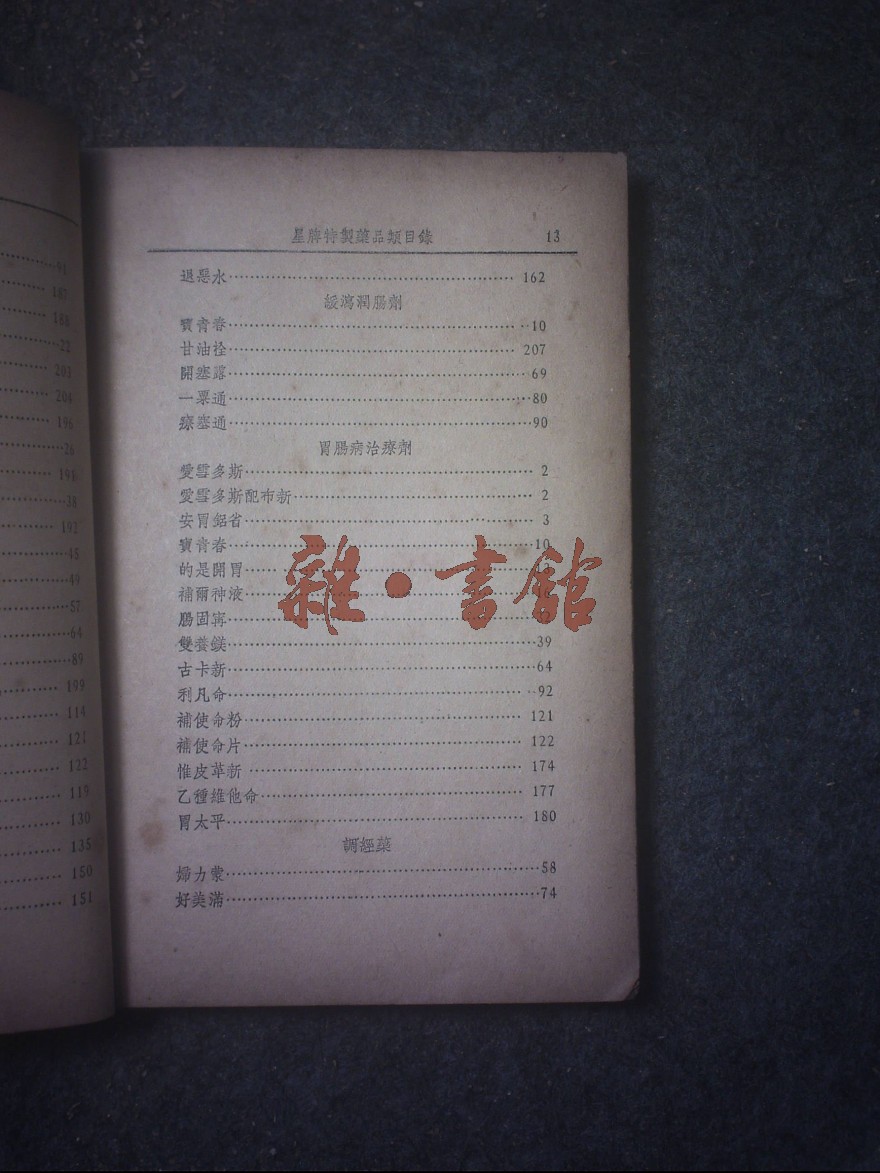 91
187
168
22
203
204
196
26
198
38
192
45
49
57
64
89
199
114
121
122
119
130
135
150
151
星牌特製藥品類目錄 13
退惡水 162
緩瀉潤腸劑
寶青春 10
甘油栓 207
開塞露 69
一粟通 80
療塞通 90
胃腸病治療劑
愛雪多斯 2
愛雪多斯配布新 2
安胃鋁省 3
寶青春 10
的是開胃
補爾神液
腸固寧
雙養鎂 39
古卡新 64
利凡命 92
補使命粉 121
補使命片 122
惟皮革新 174
乙種維他命 177
胃太平 180
調經藥
婦力蒙 58
好美滿 74
雜·書館